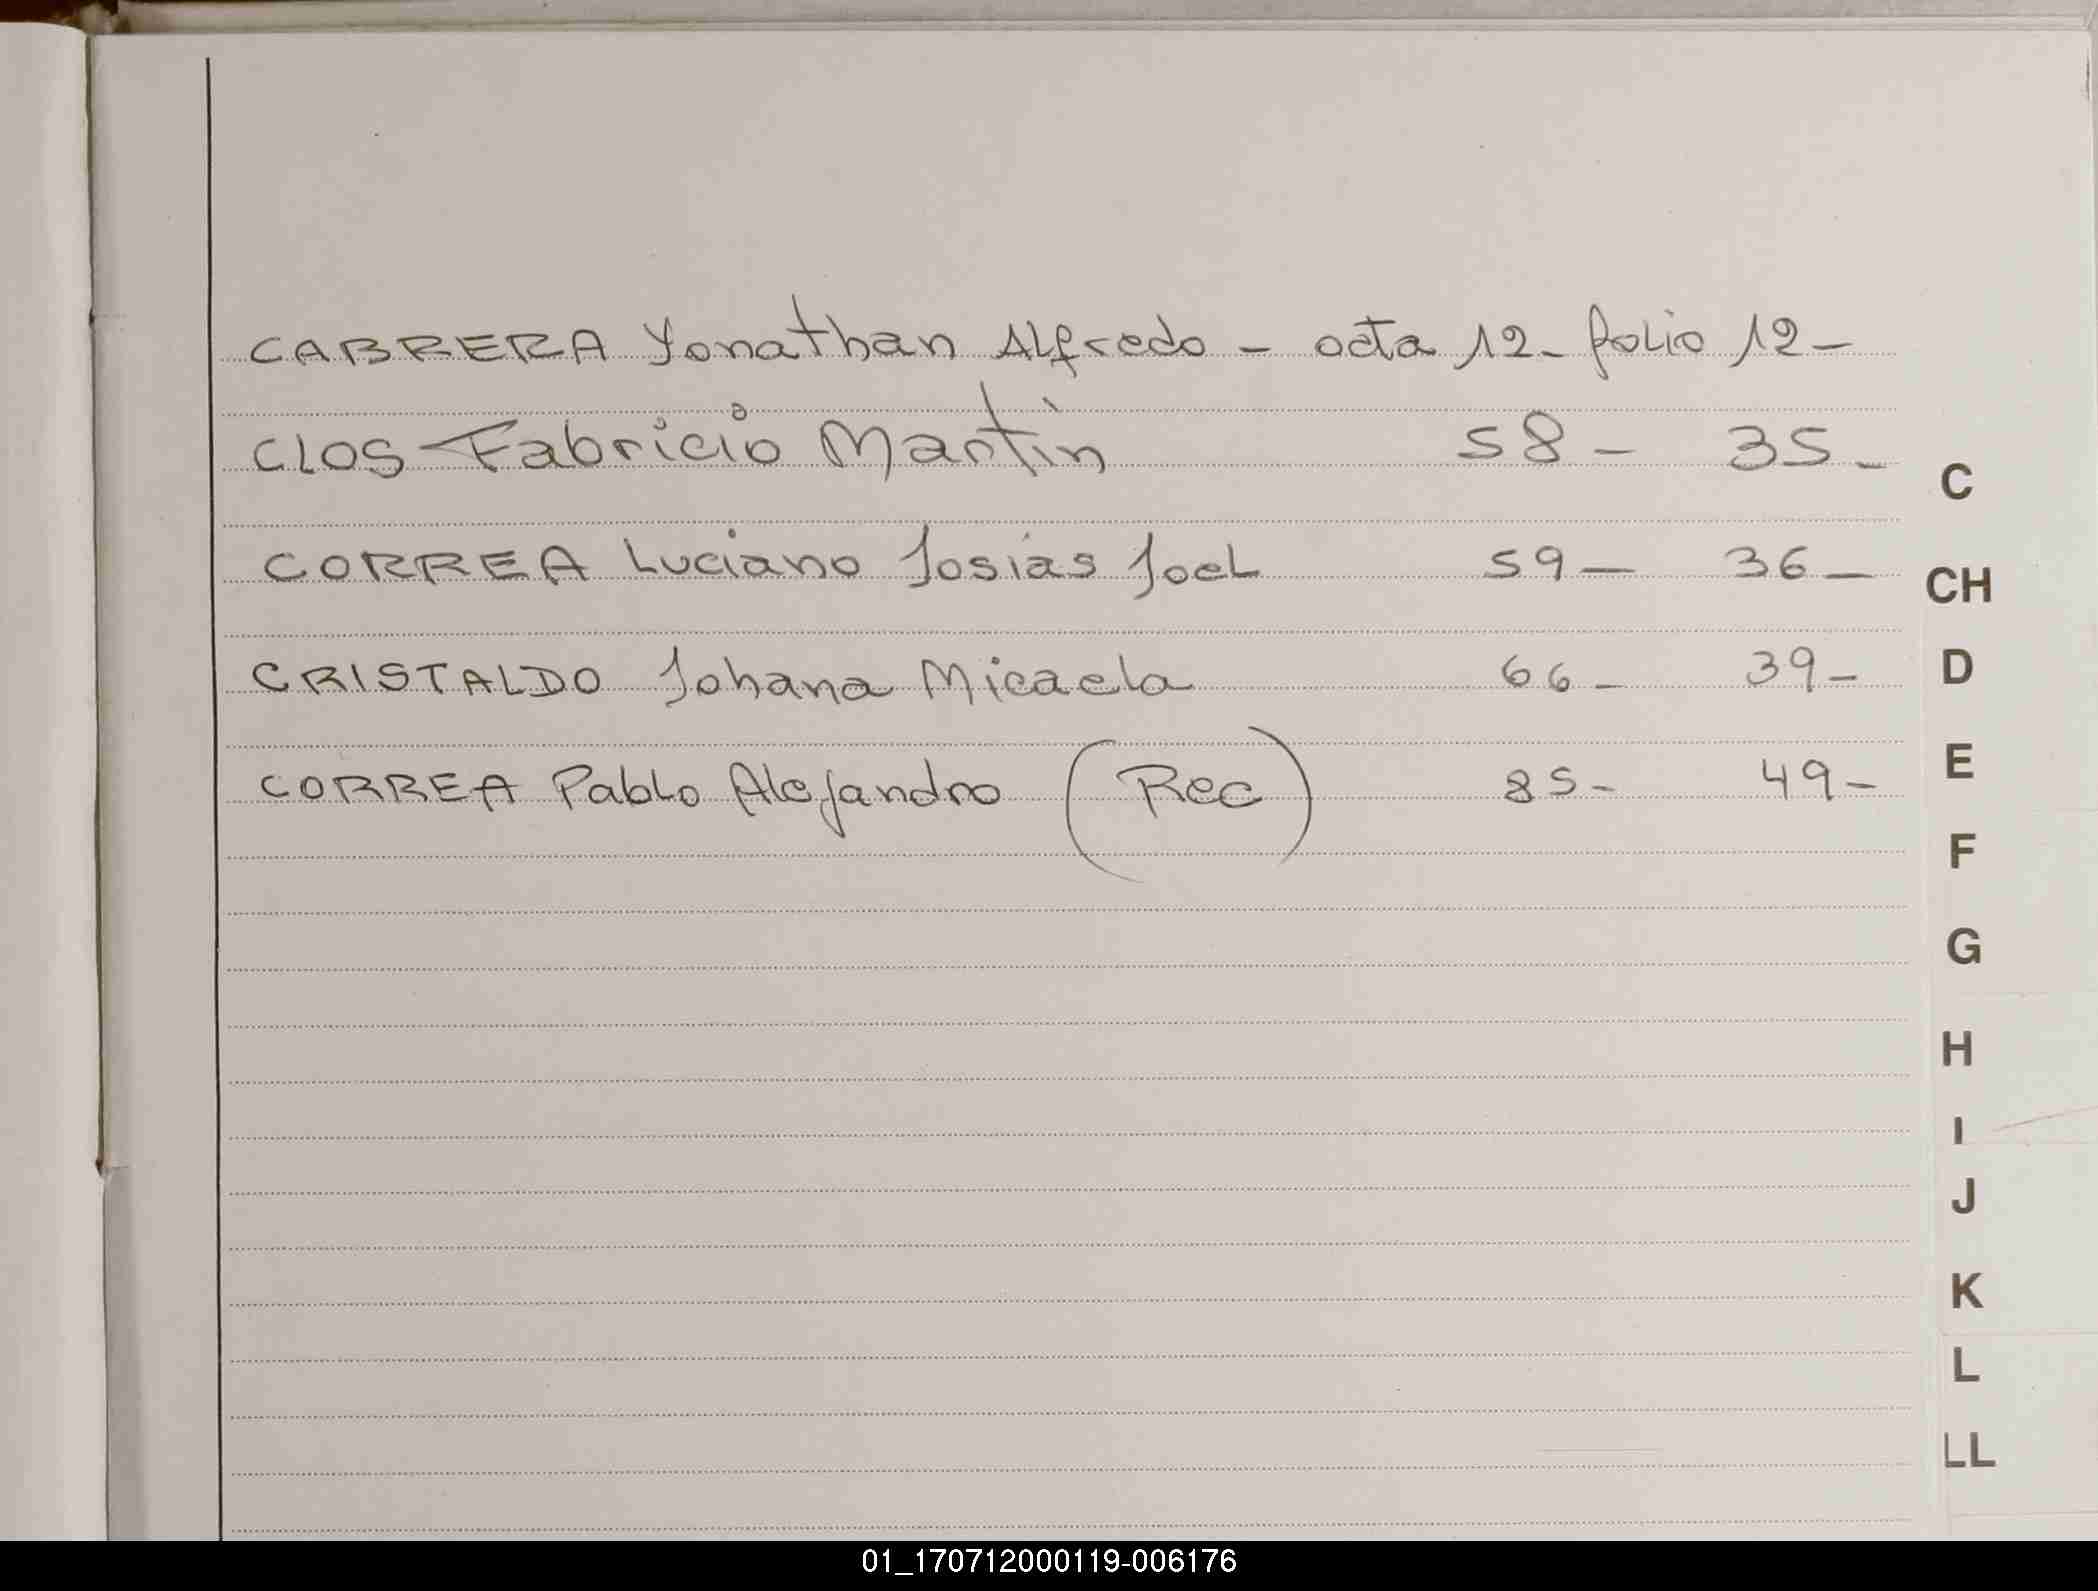 CABRERA Yonathan Alfredo - acta 12- folio 12-
CLOS Fabricio Martin 58- 35-
CORREA Luciano Josías Joel 59- 36-
CRISTALDO Johana Micaela 66- 39-
CORREA Pablo Alejandro (Rec) 85- 49-
C
CH
D
E
F
G
H
I
J
K
L
LL
01_170712000119-006176